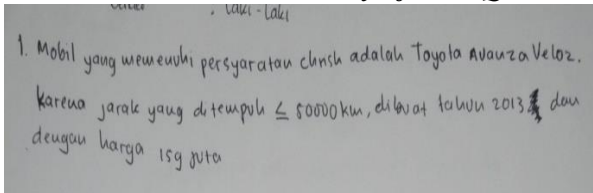 . Laki-Laki
1. Mobil yang memenuhi persyaratan chrish adalah Toyota Avanza Veloz.
Karena jarak yang ditempuh ≤ 50000 km, dibuat tahun 2013 dan
dengan harga 159 juta